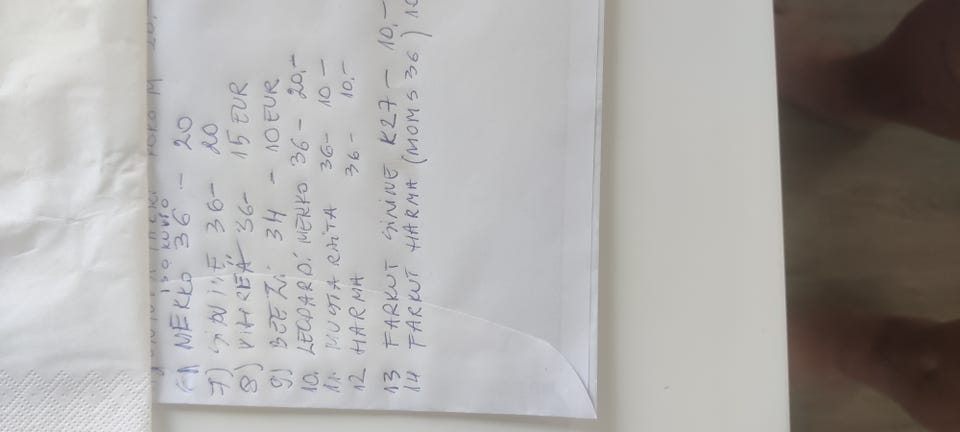 ISO KUVIO
6) MEKKO 36 - 20
7) SININE 36- 20
8) VIHREÄ 36- 15 EUR
9) BEEZI 34 - 10 EUR
10. LEOPARDI MEKKO 36- 20,-
11. MUSTA RAITA 36- 10 -
12 HARMA 36- 10,-
13 FARKUT SININE K27 - 10,-
14 FARKUT HARMA (MOMS 36) 10